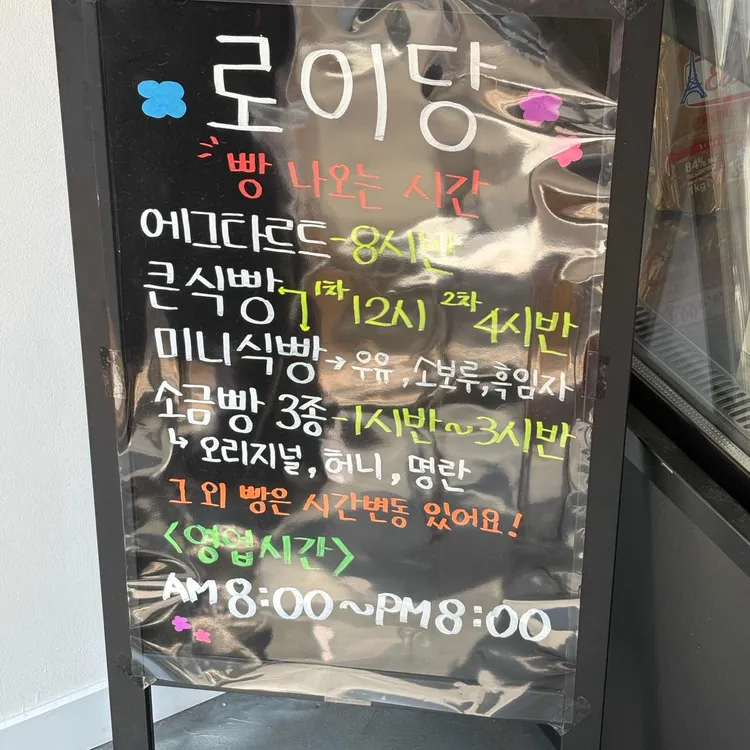 로이당
빵 나오는 시간
에그타르트-8시반
큰식빵 1차 12시 2차 4시반
미니식빵→우유,소보루,흑임자
소금빵 3종-1시반~3시반
↳ 오리지널, 허니, 명란
그 외 빵은 시간변동 있어요!
<영업시간>
AM 8:00~PM 8:00
84%
1kg